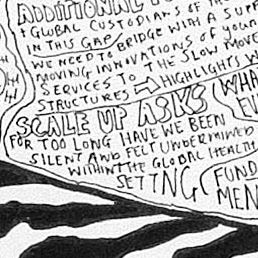 ADDITIONAL
+ GLOBAL CUSTODIANS OF THE
IN THIS GAP
WE NEED TO BRIDGE WITH A SUPER
MOVING INNOVATIONS OF YOUR
SERVICES TO THE SLOW MOVE
STRUCTURES ⇨ HIGHLIGHTS
SCALE UP ASKS
FOR TOO LONG HAVE WE BEEN
SILENT AND FELT UNDERMINED
WITHIN THE GLOBAL HEALTH
SETTING
(WHA
FUND
MEN
OH
OH